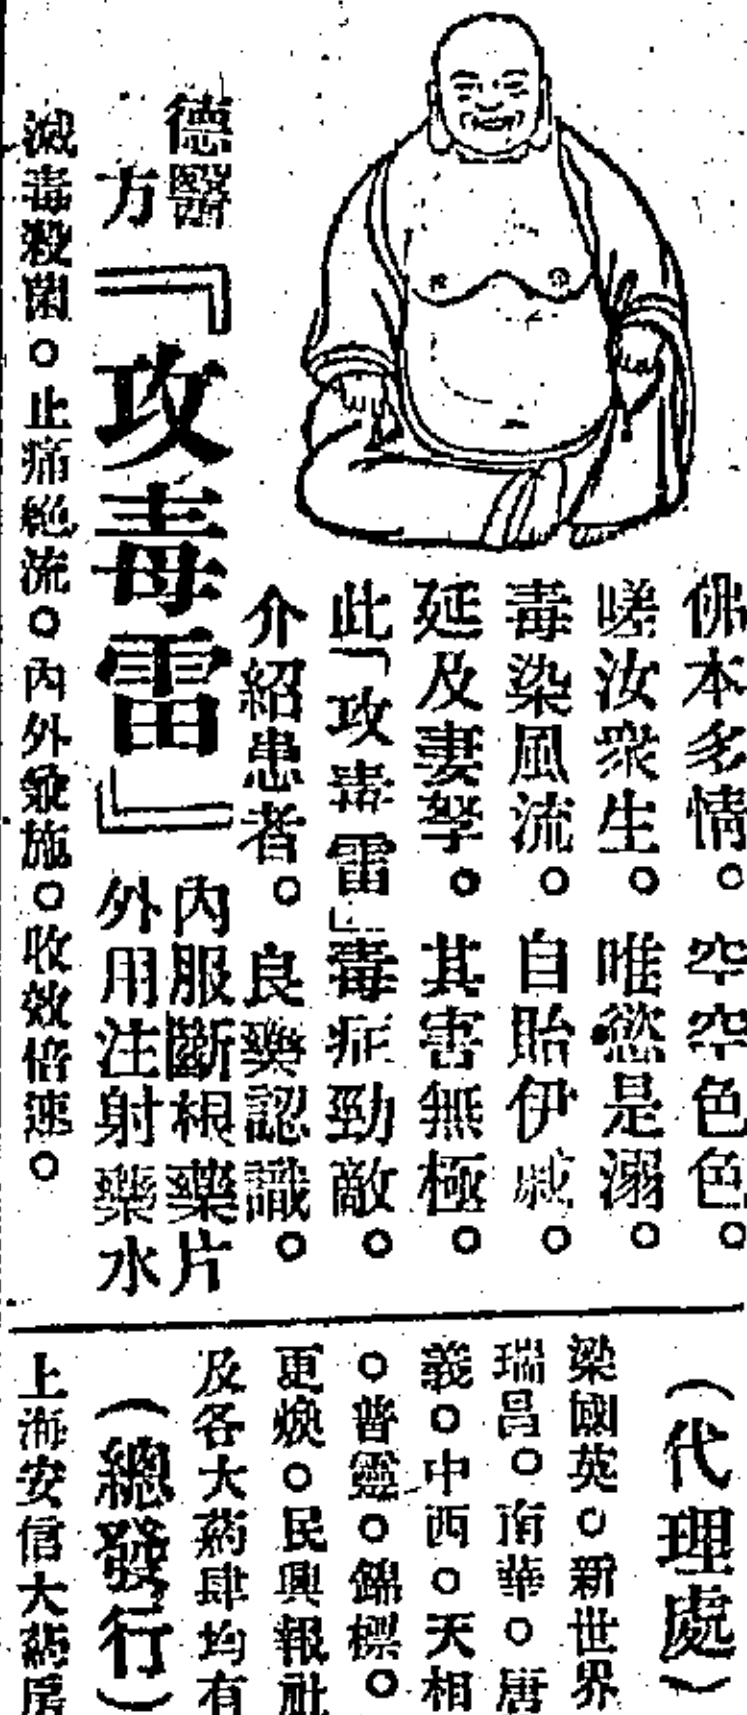 佛本多情。空空色色。
嗟汝衆生。唯慾是溺。
毒染風流。自貽伊戚。
延及妻孥。其害無極。
此「攻毒雷」毒症勁敵。
介紹患者。良藥認識。
德醫方
『攻毒雷』
內服斷根藥片
外用注射藥水
滅毒殺菌。止痛絕流。內外兼施。收效倍速。
(代理處)
梁國英。新世界
瑞昌。南華。唐
義。中西。天相
。普靈。錦標。
更煥。民興報社
及各大葯肆均有
(總發行)
上海安信大葯房